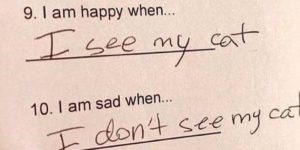 9. I am happy when...
I see my cat
10. I am sad when...
I don't see my cat